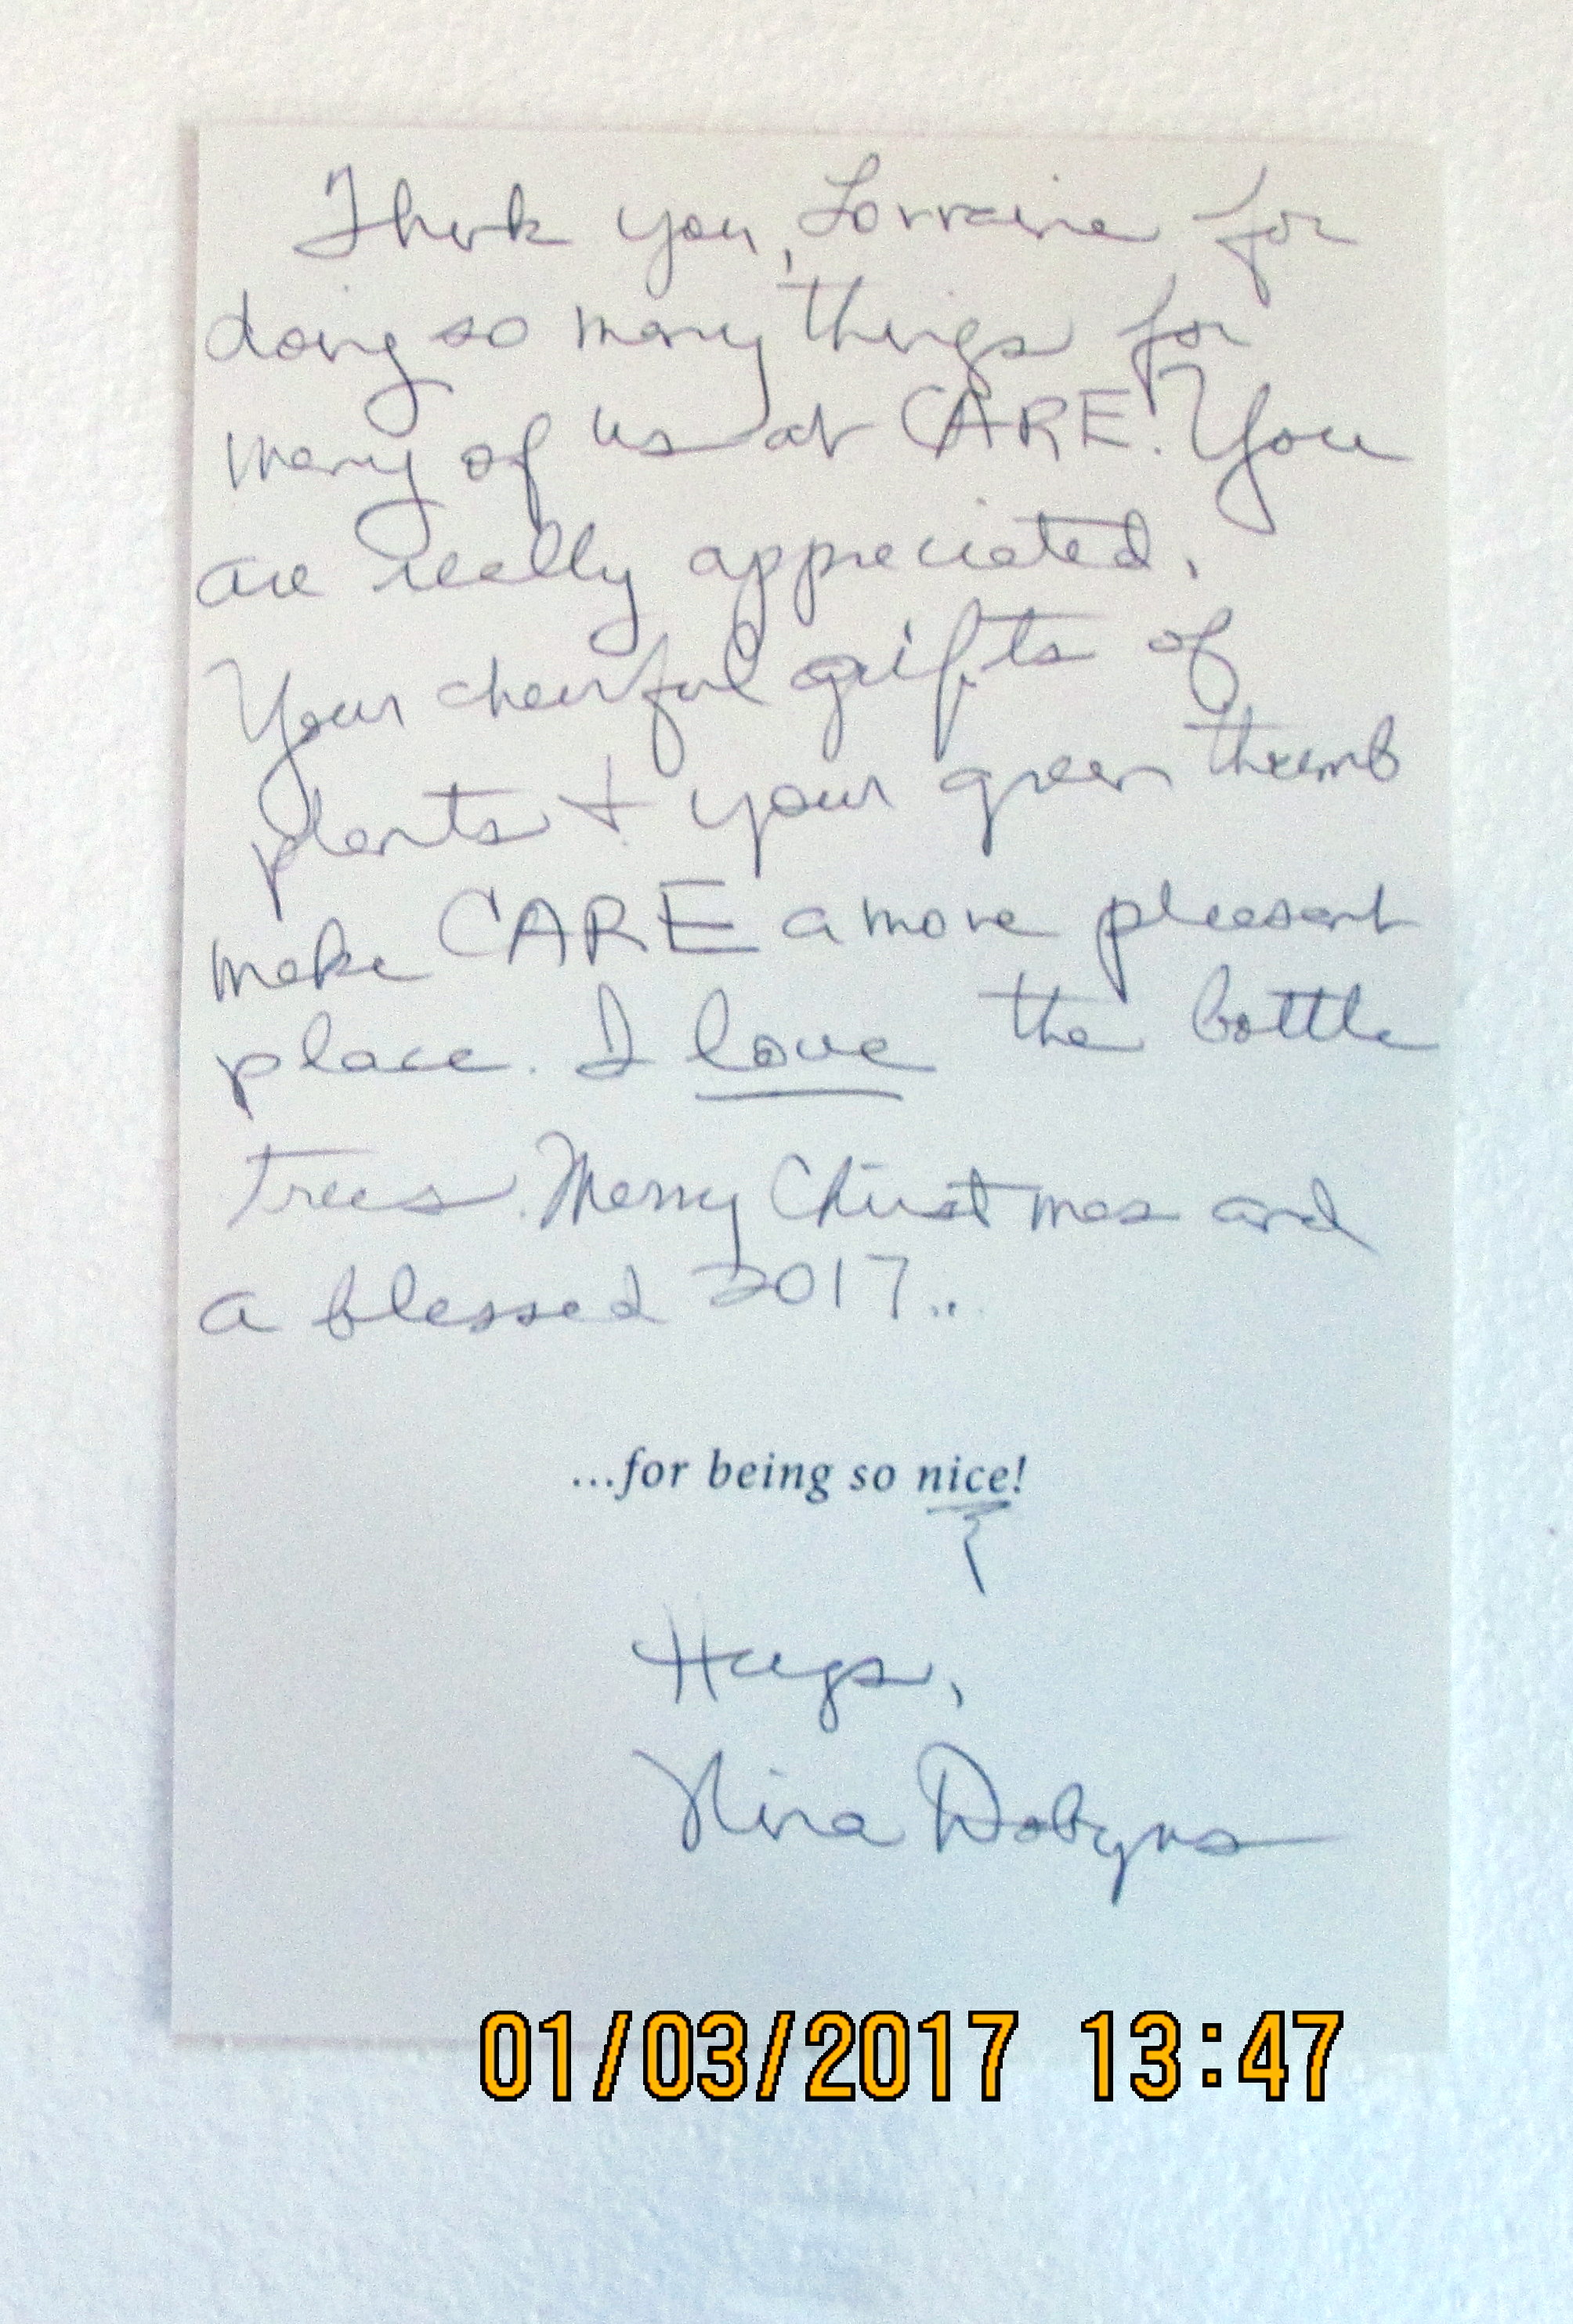 Thank you, Lorraine for
doing so many things for
many of us at CARE! You
are really appreciated.
Your cheerful gifts of
plants + your green thumb
make CARE a more pleasant
place. I love the bottle
trees. Merry Christmas and
a blessed 2017...
...for being so nice!
Hugs,
Nina Dobyns
01/03/2017 13:47